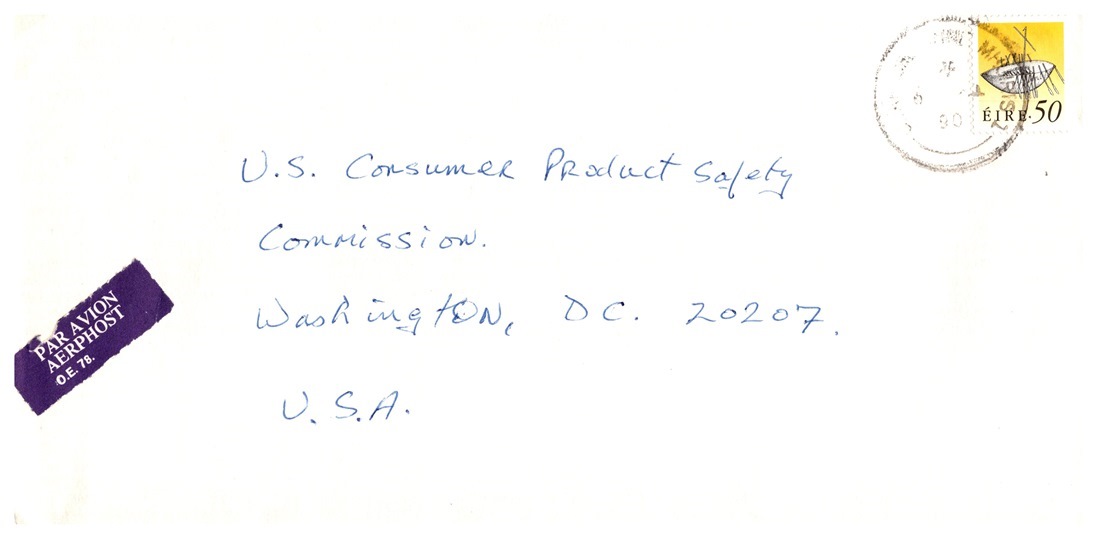 ÉIRE·50
90
U.S. Consumer Product Safety
Commission.
Washington, DC. 20207.
U.S.A.
PAR AVION
AERPHOST
O.E. 78.